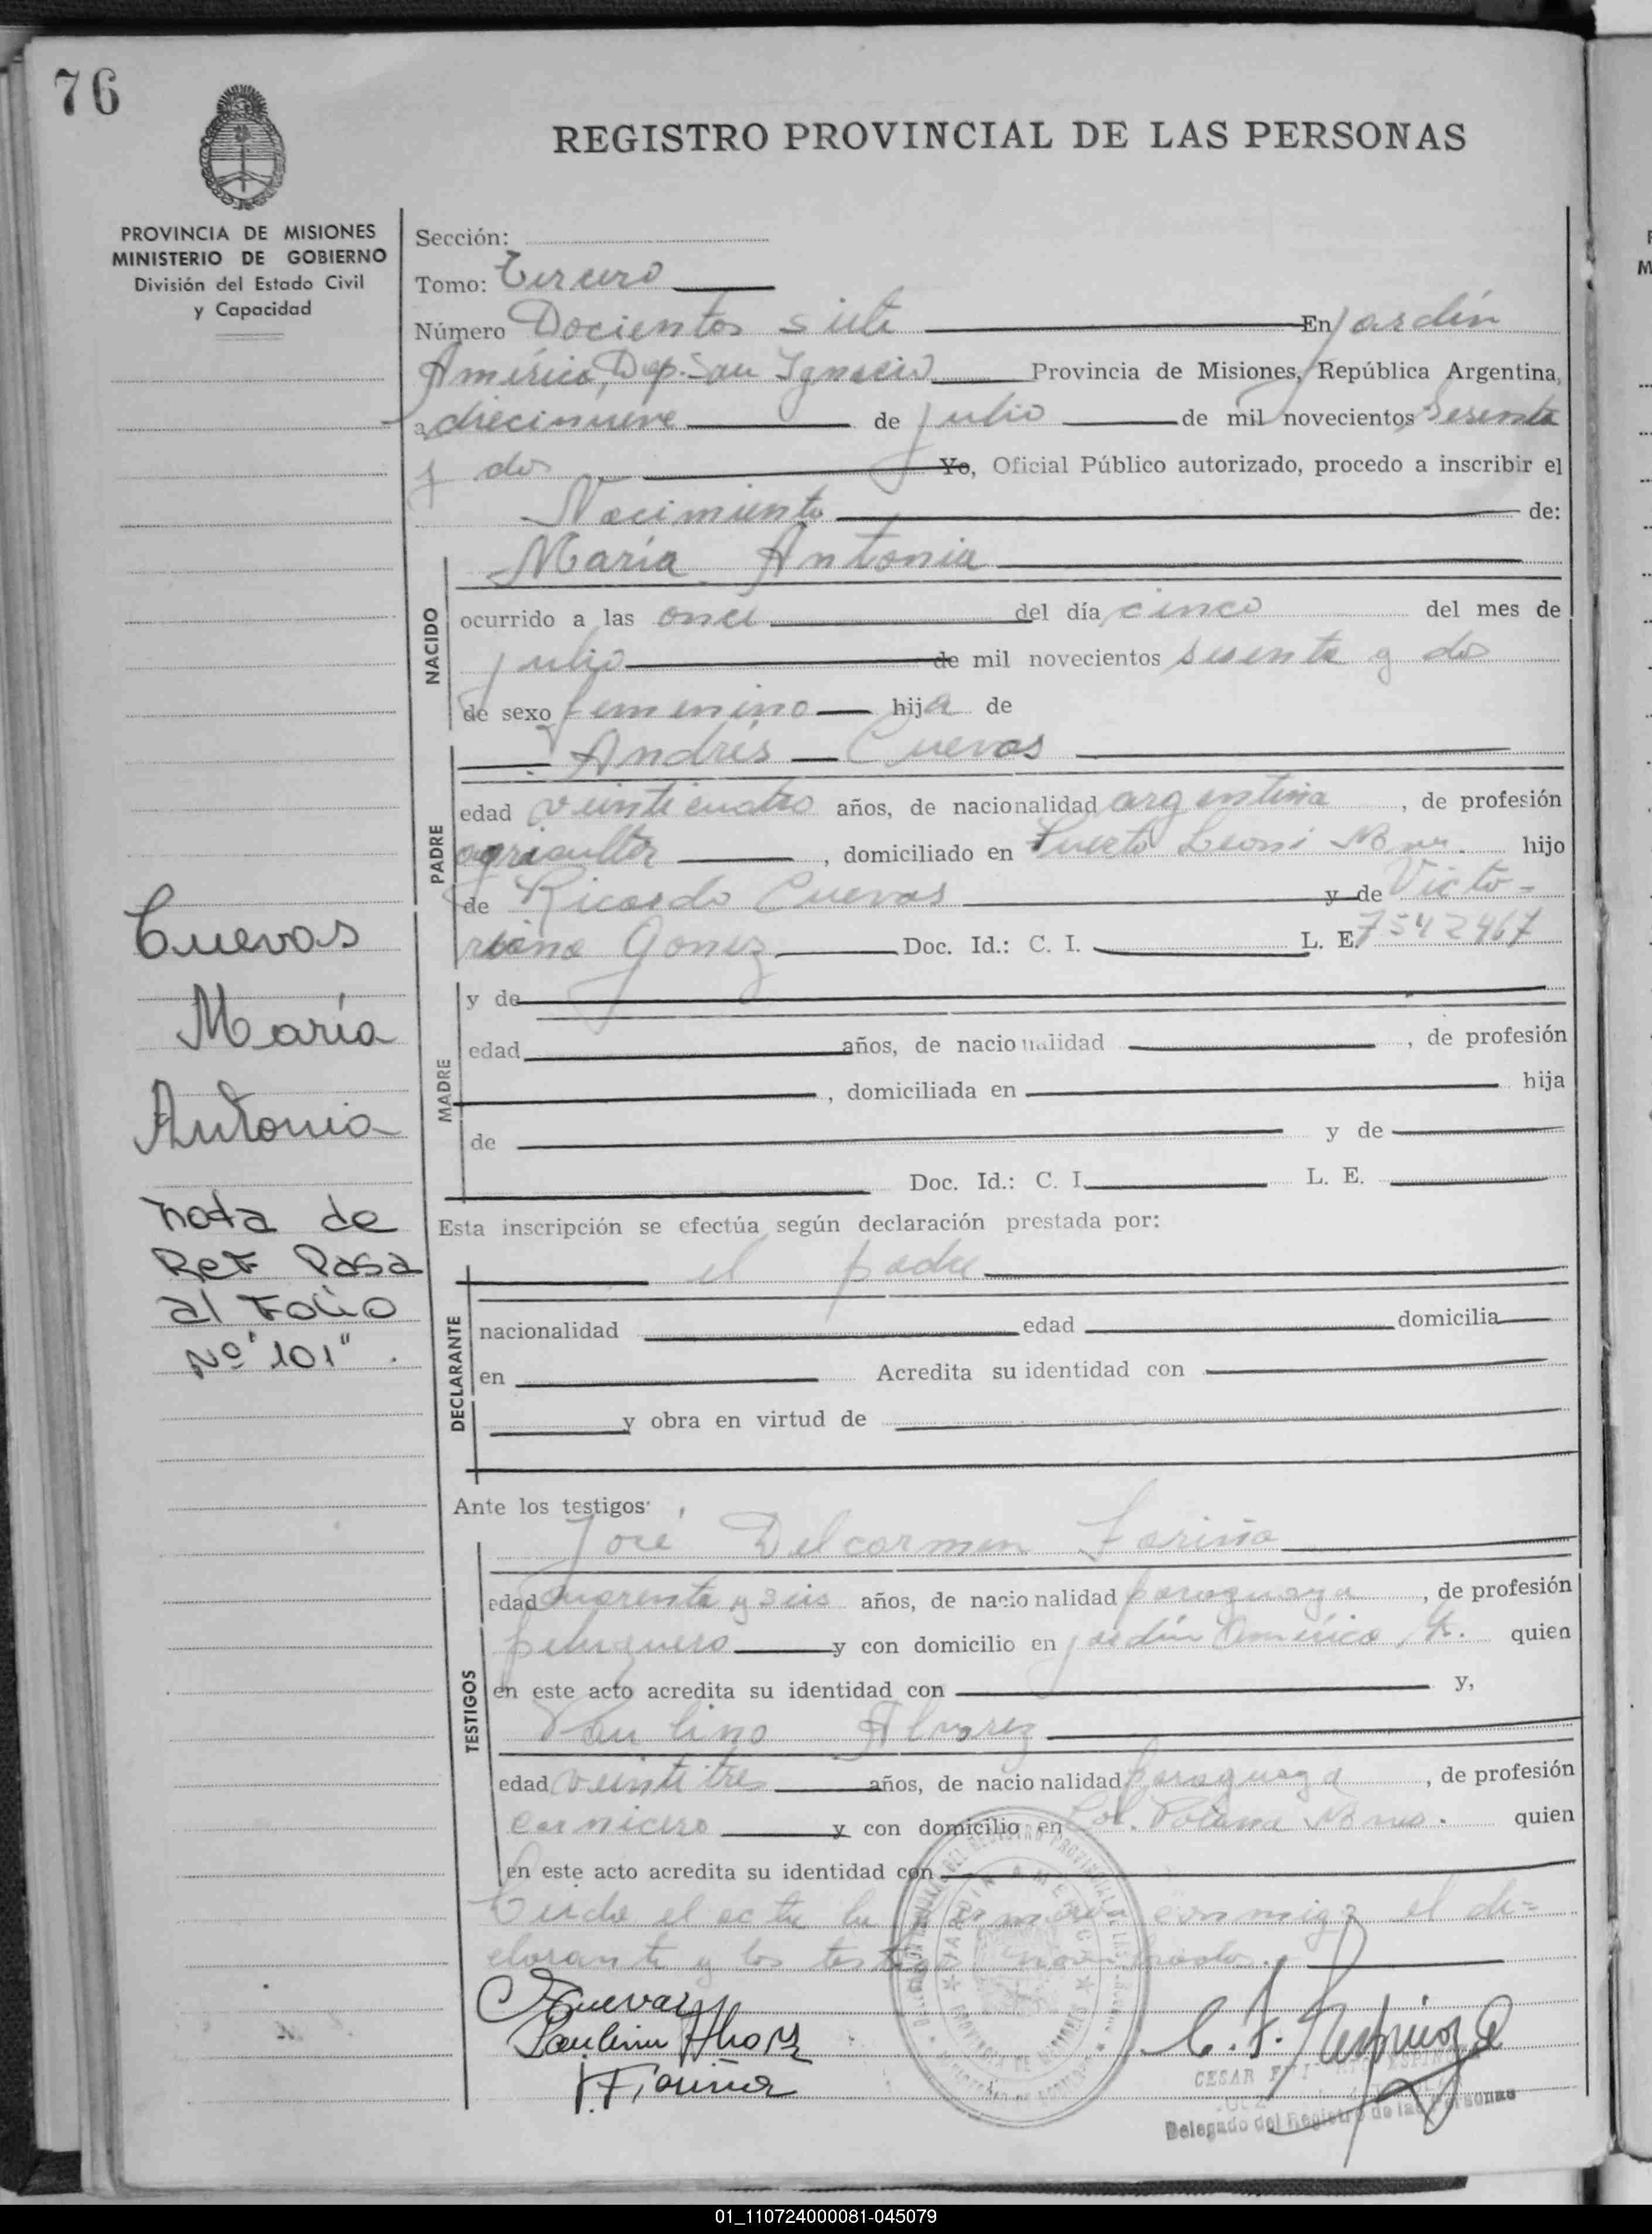 76
REGISTRO PROVINCIAL DE LAS PERSONAS
PROVINCIA DE MISIONES
MINISTERIO DE GOBIERNO
División del Estado Civil
y Capacidad
Sección:
Tomo: Tercero
Número Docientos siete En Jardín
América, Dep. San Ignacio Provincia de Misiones, República Argentina,
a diecinueve de julio de mil novecientos sesenta
y dos Yo, Oficial Público autorizado, procedo a inscribir el
Nacimiento de:
María Antonia
NACIDO
ocurrido a las once del día cinco del mes de
julio de mil novecientos sesenta y dos
de sexo femenino hija de
Andrés Cuevas
PADRE
edad veinticuatro años, de nacionalidad argentina, de profesión
agricultor, domiciliado en Puerto Leoni hijo
de Ricardo Cuevas y de Victo-
riana Gomez Doc. Id.: C. I. L. E. 7542467
MADRE
y de
edad años, de nacionalidad, de profesión
, domiciliada en hija
de y de
Doc. Id.: C. I. L. E.
Esta inscripción se efectúa según declaración prestada por:
el padre
DECLARANTE
nacionalidad edad domicilia
en Acredita su identidad con
y obra en virtud de
Ante los testigos:
José Delcarmen Fariña
TESTIGOS
edad cuarenta y seis años, de nacionalidad paraguaya, de profesión
peluquero y con domicilio en jardín América quien
en este acto acredita su identidad con y,
Paulino Alvarez
edad veintitres años, de nacionalidad paraguaya, de profesión
carnicero y con domicilio en Col. quien
en este acto acredita su identidad con
el acta la conmigo el de-
clarante y los testigos nombrados.
Cuevas
María
Antonia
Nota de
Ref Pasa
al Folio
Nº "101".
Cuevas
Paulino Alvarez
Fariña
JARDIN AMERICA
PROVINCIA DE MISIONES
CESAR
Delegado del Registro de las Personas
01_110724000081-045079